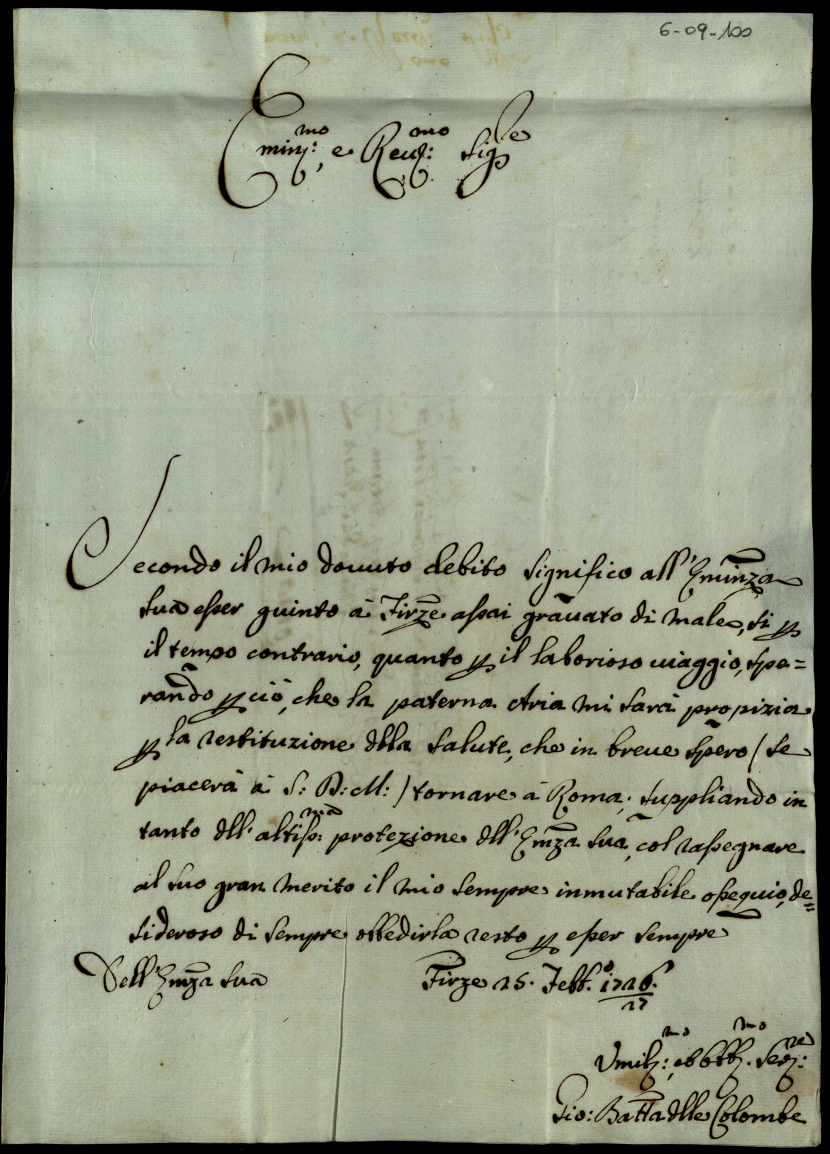 6-09-100
Emin:mo, e Reu:mo Sigre
Secondo il mio douuto debito significo all'Eminza
Sua esser guinto à Firze assai grauato di male, si p
il tempo contrario, quanto p il laborioso uiaggio, spe=
rando p ciò, che la paterna Aria mi sarà propizia
p la restituzione dlla salute, che in breue spero (se
piacerà à S: D: M:) tornare à Roma; suppliando in
tanto dll'altiss:ma protezione dll'Emza Sua, col rassegnare
al suo gran merito il mio sempre inmutabile ossequio, de=
sideroso di sempre obbedirla resto p esser sempre
Dell'Emza Sua
Firze 25. Febb.o 1726./27
Umil:mo, obb:mo Ser:re
Gio: Batta dlle Colombe